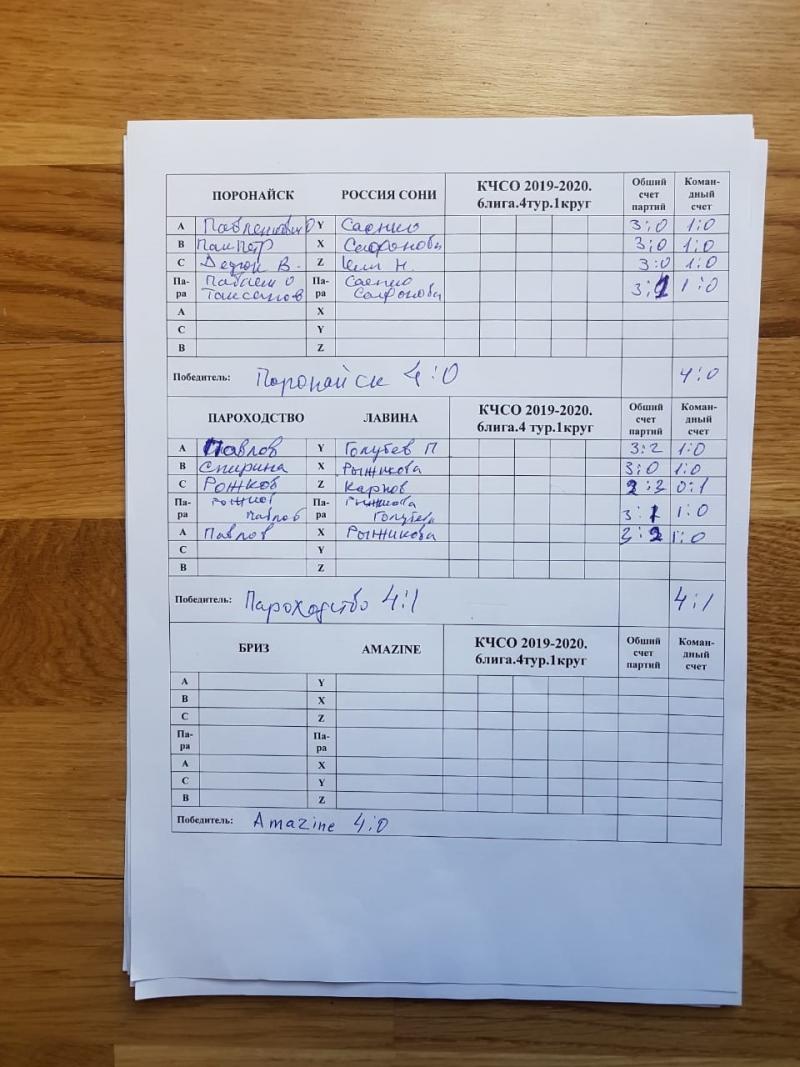 ПОРОНАЙСК РОССИЯ СОНИ КЧСО 2019-2020. 6лига.4тур.1круг Общий счет партий Коман-дный счет
A Y Саенко 3:0 1:0
B Пак Петр X Сафонова 3:0 1:0
C В. Z Ким Н. 3:0 1:0
Па-ра Па-ра Саенко Сафонова 3:1 1:0
A X
C Y
B Z
Победитель: Поронайск 4:0 4:0
ПАРОХОДСТВО ЛАВИНА КЧСО 2019-2020. 6лига.4 тур.1круг Общий счет партий Коман-дный счет
A Павлов Y Голубев П 3:2 1:0
B Спирина X Рыжикова 3:0 1:0
C Рожков Z Карпов 2:3 0:1
Па-ра Рожков Павлов Па-ра Рыжикова 3:1 1:0
A Павлов X Рыжикова 3:2 1:0
C Y
B Z
Победитель: Пароходство 4:1 4:1
БРИЗ AMAZINE КЧСО 2019-2020. 6лига.4тур.1круг Общий счет партий Коман-дный счет
A Y
B X
C Z
Па-ра Па-ра
A X
C Y
B Z
Победитель: Amazine 4:0